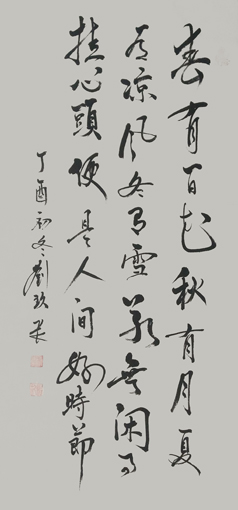 春有百花秋有月夏
有凉风冬有雪若无闲事
挂心頭便是人间好時節
丁酉初冬劉